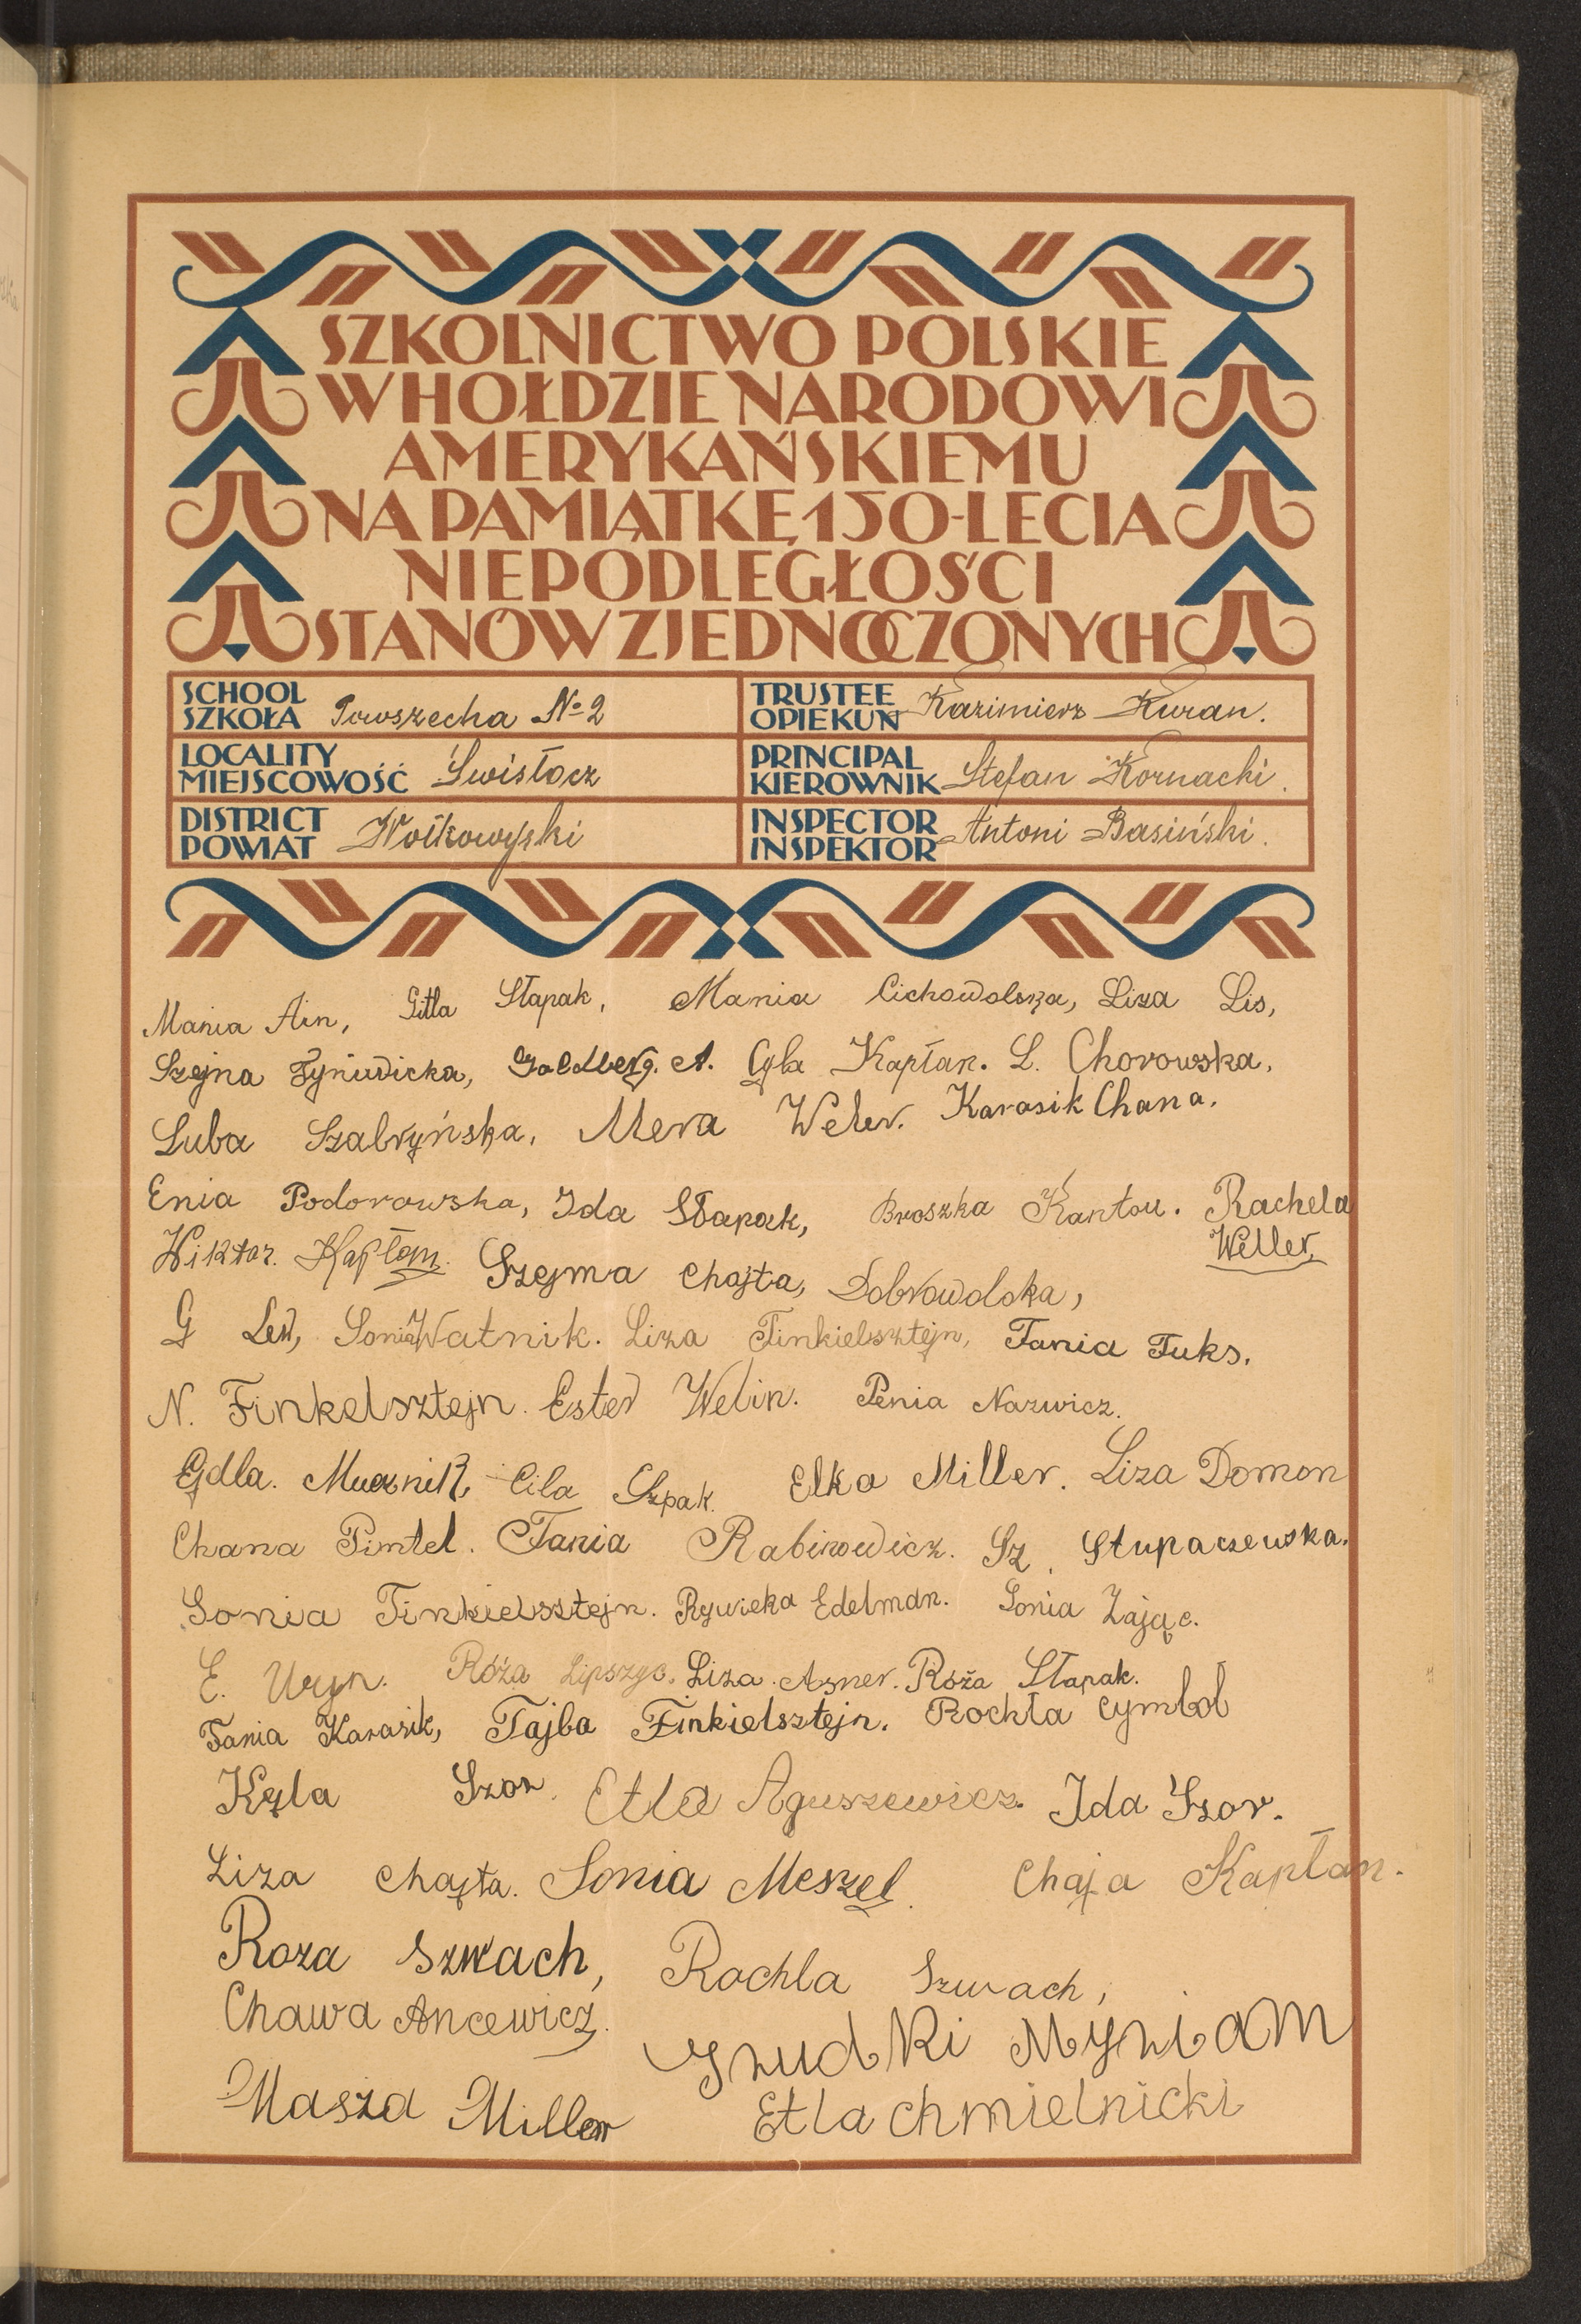 SZKOLNICTWO POLSKIE
W HOŁDZIE NARODOWI
AMERYKAŃSKIEMU
NA PAMIĄTKĘ 150-LECIA
NIEPODLEGŁOŚCI
STANÓW ZJEDNOCZONYCH
SCHOOL
SZKOŁA Powszecha № 2
TRUSTEE
OPIEKUN Kazimierz Kuran.
LOCALITY
MIEJSCOWOŚĆ Swisłocz
PRINCIPAL
KIEROWNIK Stefan Kornacki.
DISTRICT
POWIAT Wołkowyski
INSPECTOR
INSPEKTOR Antoni Basiński.
Mania Ain, Gitla Słapak, Mania Cichowolska, Liza Lis,
Szejna Fyniewicka, Goldberg. A. Cyla Kapłan. L. Chorowska.
Luba Szabryńska, Mera Weler. Karasik Chana.
Enia Podorowska, Ida Słapak, Broszka Kantor. Rachela
Weller,
Wiktor. Kapłan. Szejma Chajta, Dobrowolska,
G Lew, Sonia Watnik. Liza Finkielsztejn, Fania Fuks.
N. Finkelsztejn. Ester Welin. Penia Nazwicz.
Edla. Mucznik, Cila Szpak. Elka Miller. Liza Domon
Chana Pintel. Fania Rabinowicz. Sz. Stupaczewska.
Sonia Finkielsztejn. Rywieka Edelman. Sonia Zając.
E. Uryn. Róża Lipszyc. Liza Asner. Róża Słapak.
Fania Karasik, Fajba Finkielsztejn. Rochla Cymbol
Kejla Szor. Etla Aguszewicz. Ida Szor.
Liza Chajta. Sonia Meszel. Chaja Kapłan.
Roza Szwach, Rochla Szwach,
Chawa Ancewicz.
Masza Miller Etla Chmielnicki